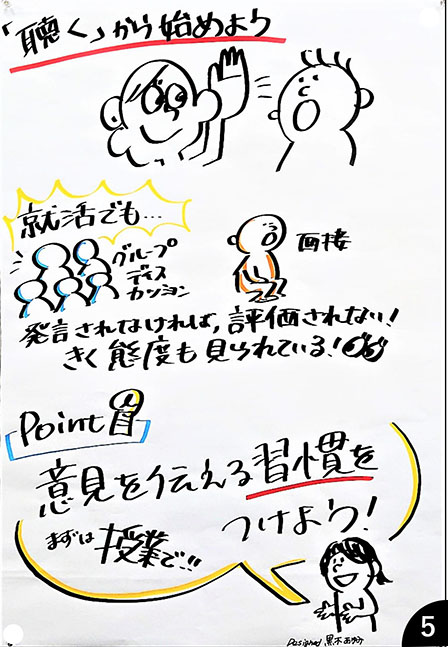 「聴く」から始めよう
就活でも…
グループ
ディス
カッション
面接
発言されなければ,評価されない!
きく態度も見られている!
Point
意見を伝える習慣を
つけよう!
まずは授業で…!!
Designed 黒木
5